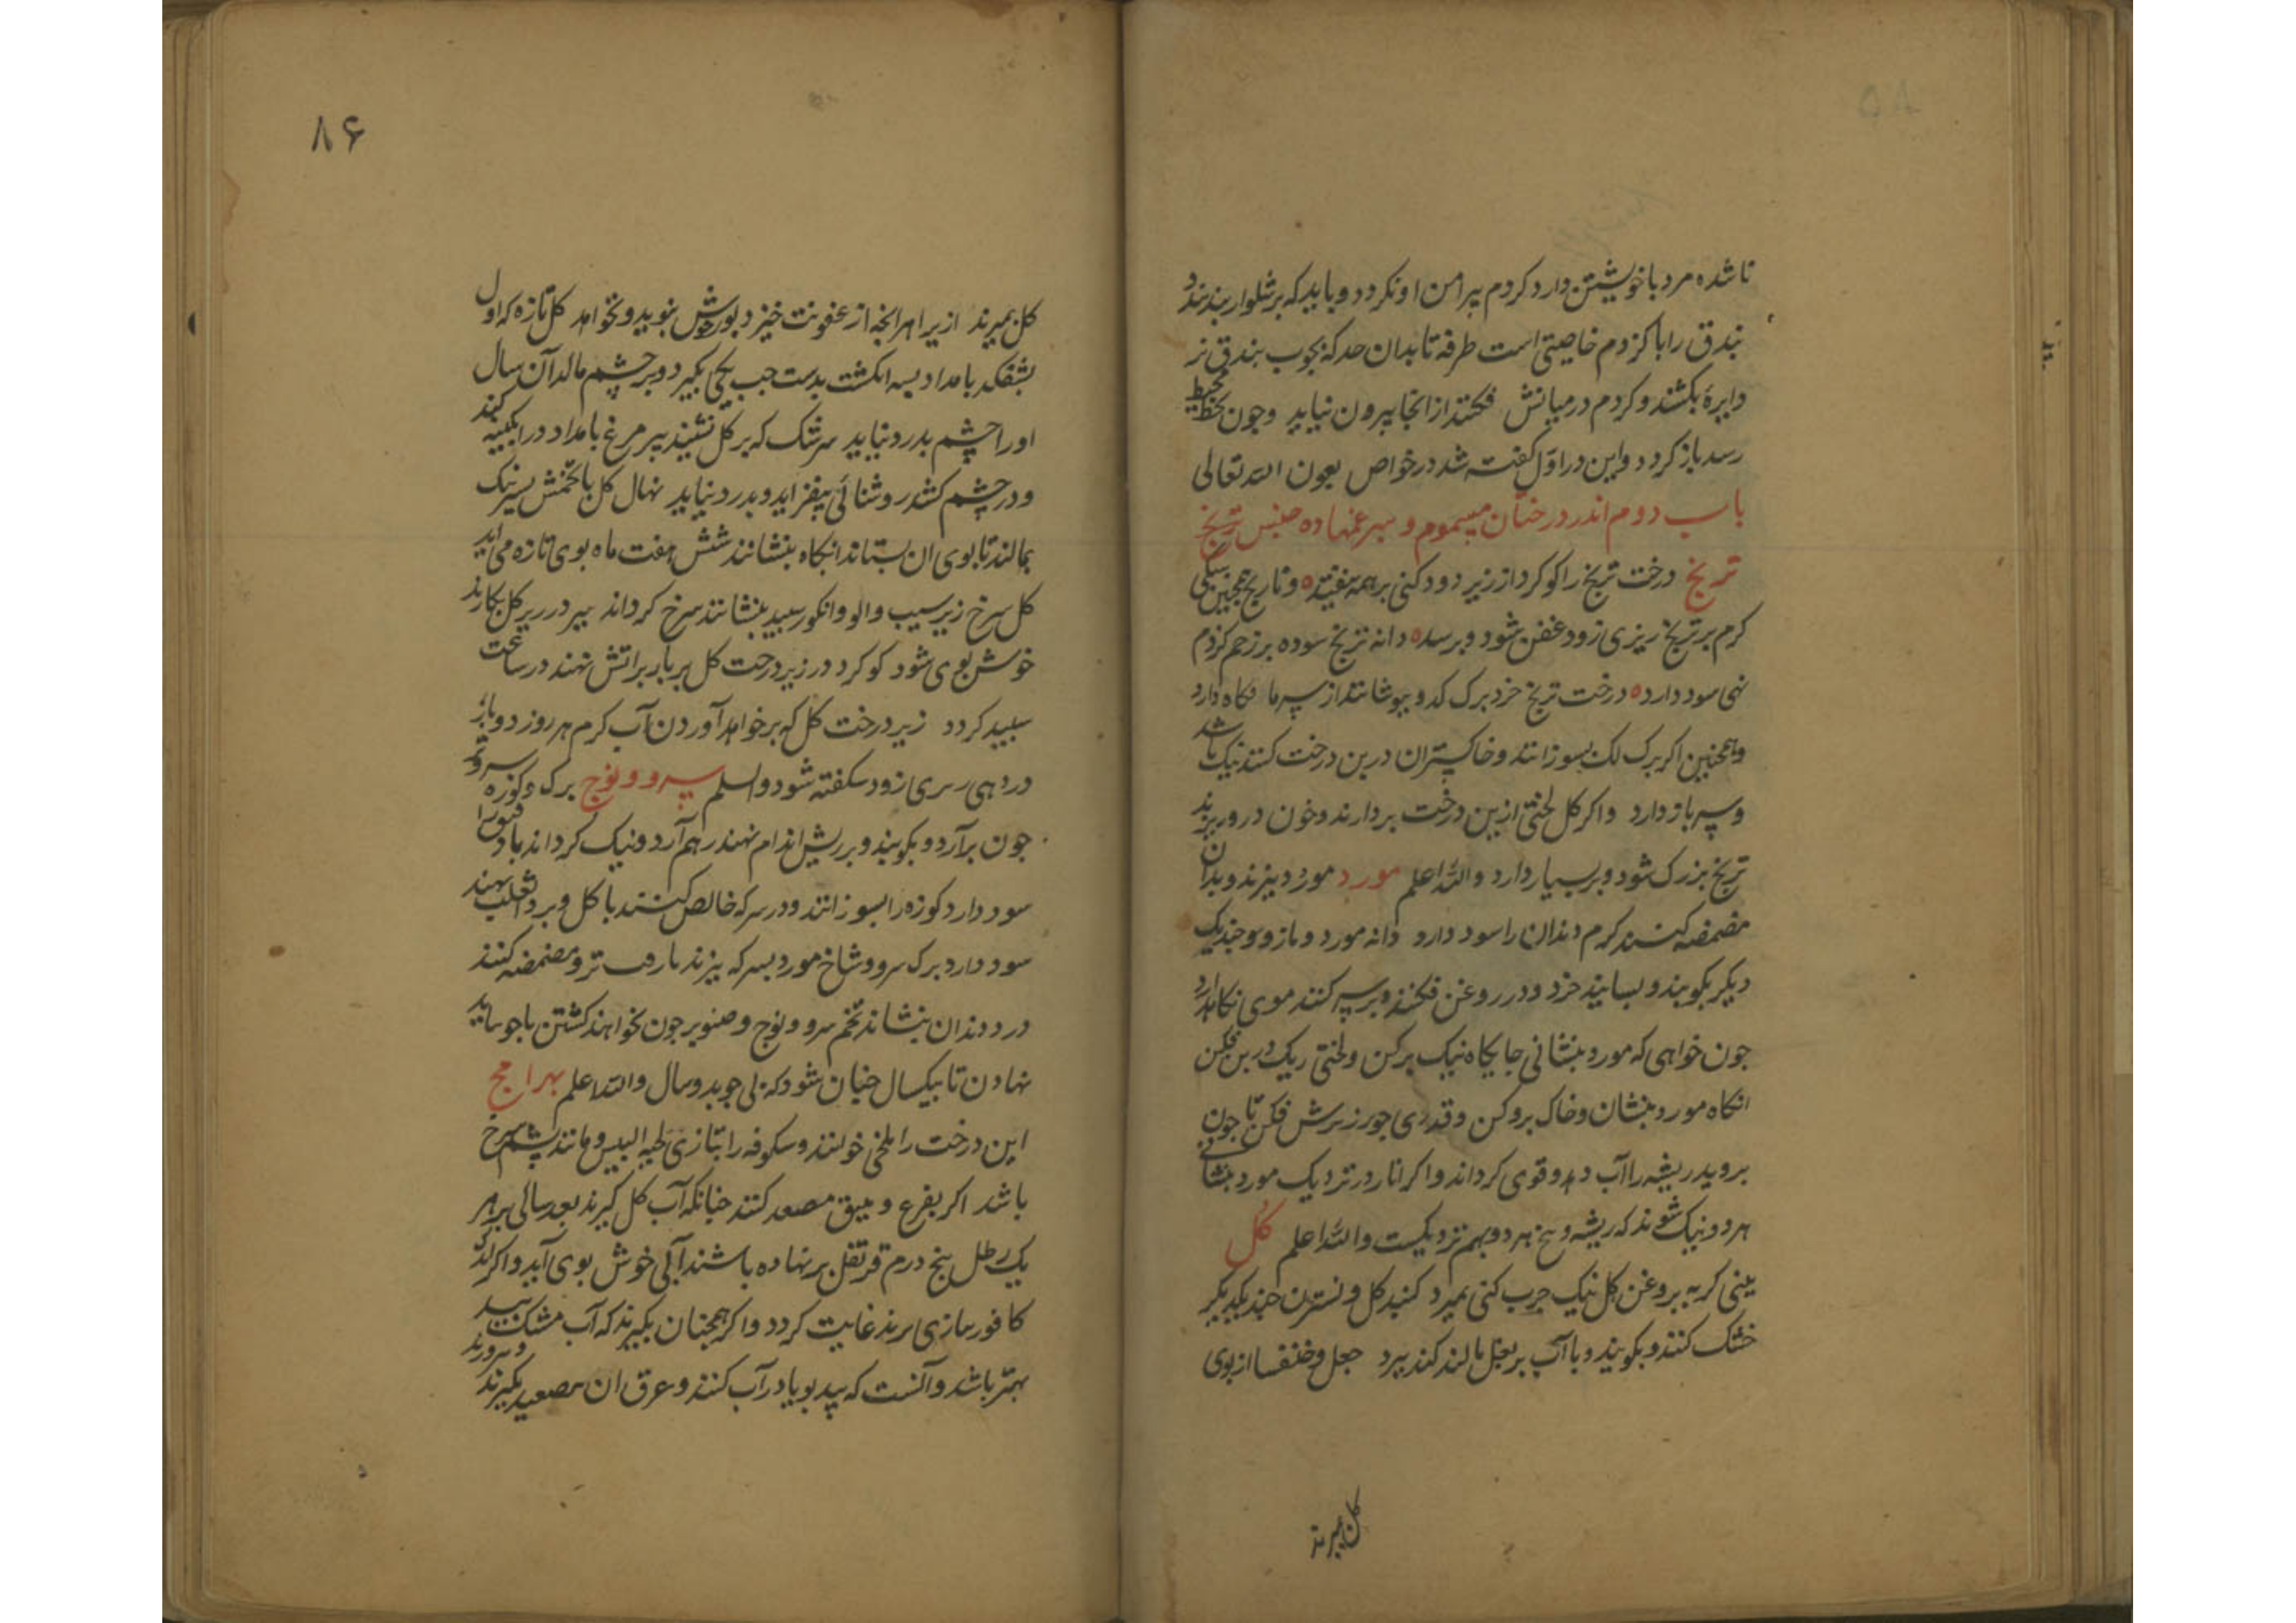 تا شده مرد با خویشتن دارد کردم پیرامن او نکردد و باید که بر شلوار بندند و
بندق را با کزدم خاصیتی است طرفه تا بدان حد که بچوب بندق تر
دایرهٔ بکشند و کردم در میانش فکنند از انجا بیرون نیاید وجون بخط
رسد باز کردد و این در اوّل کفته شد در خواص بعون الله تعالی
باب دوم اندر درختان مسموم و سپرغمها ده جنس ترنج
ترنج درخت ترنج را کوکرد از زیر دود کنی بر همه بیفتد ه و نارنج همجنین
کرم بر ترنج ریزی زود عفن شود و برسد ه دانه ترنج سوده بر زخم کزدم
نهی سود دارد ه درخت ترنج خرد ببرک کدو بپوشانند از سرما نکاه دارد
و همجنین اکر برک لک بسوزانند و خاکستر ان در بن درخت کنند نیک باشد
و سر باز دارد و اکر کل لختی از بن درخت بردارند و خون در و ریزند
ترنج بزرک شود و بر بسیار دارد والله اعلم مورد مورد بپزند و بدان
مضمضه کنند کرم دندان را سود دارد دانه مورد و مازو و جندیک
دیکر بکوبند و بسایند خرد و در روغن فکنند و بر سر کنند موی نکاه دارد
جون خواهی که مورد بنشانی جایکاه نیک برکن و لختی ریک در بن فکن
انکاه مورد بنشان و خاک برو کن و قدری جو در زیرش فکن تا جون
بروید ریشه را آب دهد و قوی کرداند و اکر انار در نزدیک مورد بنشانی
هر دو نیک شوند که ریشه و بیخ هر دو بهم نزدیکیست والله اعلم کل
بینی کربه بروغن کل نیک جرب کنی بمیرد کنبد کل و نسترن جند یکدیکر
خشک کنند و بکوبند و با آب بر بغل مالند کند ببرد جعل و خنفسا از بوی
کل بمیرند
۸۶
کل بمیرند ازیرا هر انجه از عفونت خیزد بوی خوش نبوید و نخواهد کل تازه که اول
بشکفد بامداد بسه انکشت بدست جب یکی بکیرد و بر جشم مالد آن سال
او را جشم بدرد نیاید سرشک که بر کل نشیند بپر مرغ بامداد در ابکینه کنند
و در جشم کشند روشنائی بیفزاید و بدرد نیاید نهال کل با تخمش بسیر نیک
بمالند تا بوی ان بستاند انکاه بنشانند شش هفت ماه بوی تازه می اید
کل سرخ زیر سیب و الو و انکور سبید بنشانند سرخ کرداند سیر در زیر کل بکارند
خوش بوی شود کوکرد در زیر درخت کل بربار بر اتش نهند در ساعت
سبید کردد زیر درخت کل که بر خواهد آوردن آب کرم هر روز دو بار
در زود سکفته شود والسلم سرو و نوج برک و کوزه سرو تر
جون برآرد و بکوبند و بر ریش اندام نهند بهم آرد و نیک کرداند باد فتق را
سود دارد کوزه را بسوزانند و در سرکه خالص کنند با کل و بر داءالثعلب نهند
سود دارد برک سرو و شاخ مورد بسرکه بپزند و مضمضه کنند
درد دندان بنشاند تخم سرو و نوج و صنوبر جون بخواهند کشتن با جو بباید
نهادن تا بیکسال جنان شود که بی جو بدو سال والله اعلم بهرامج
این درخت را بلخی خوانند و سکوفه را بتازی لحیه ابلیس و مانند پشم سرخ
باشد اکر بقرع و انبیق مصعد کنند جنانکه آب کل کیرند بعد سالی بر هر
یک رطل پنج درم قرنفل بر نهاده باشند آبی خوش بوی آید و اکر اندک
کافور بسازی برند غایت کردد و اکر همجنان بکیرند که آب مشک بید
بهتر باشد و آنست که بید بویا در آب کنند و بپرورند و عرق ان مصعد بکیرند